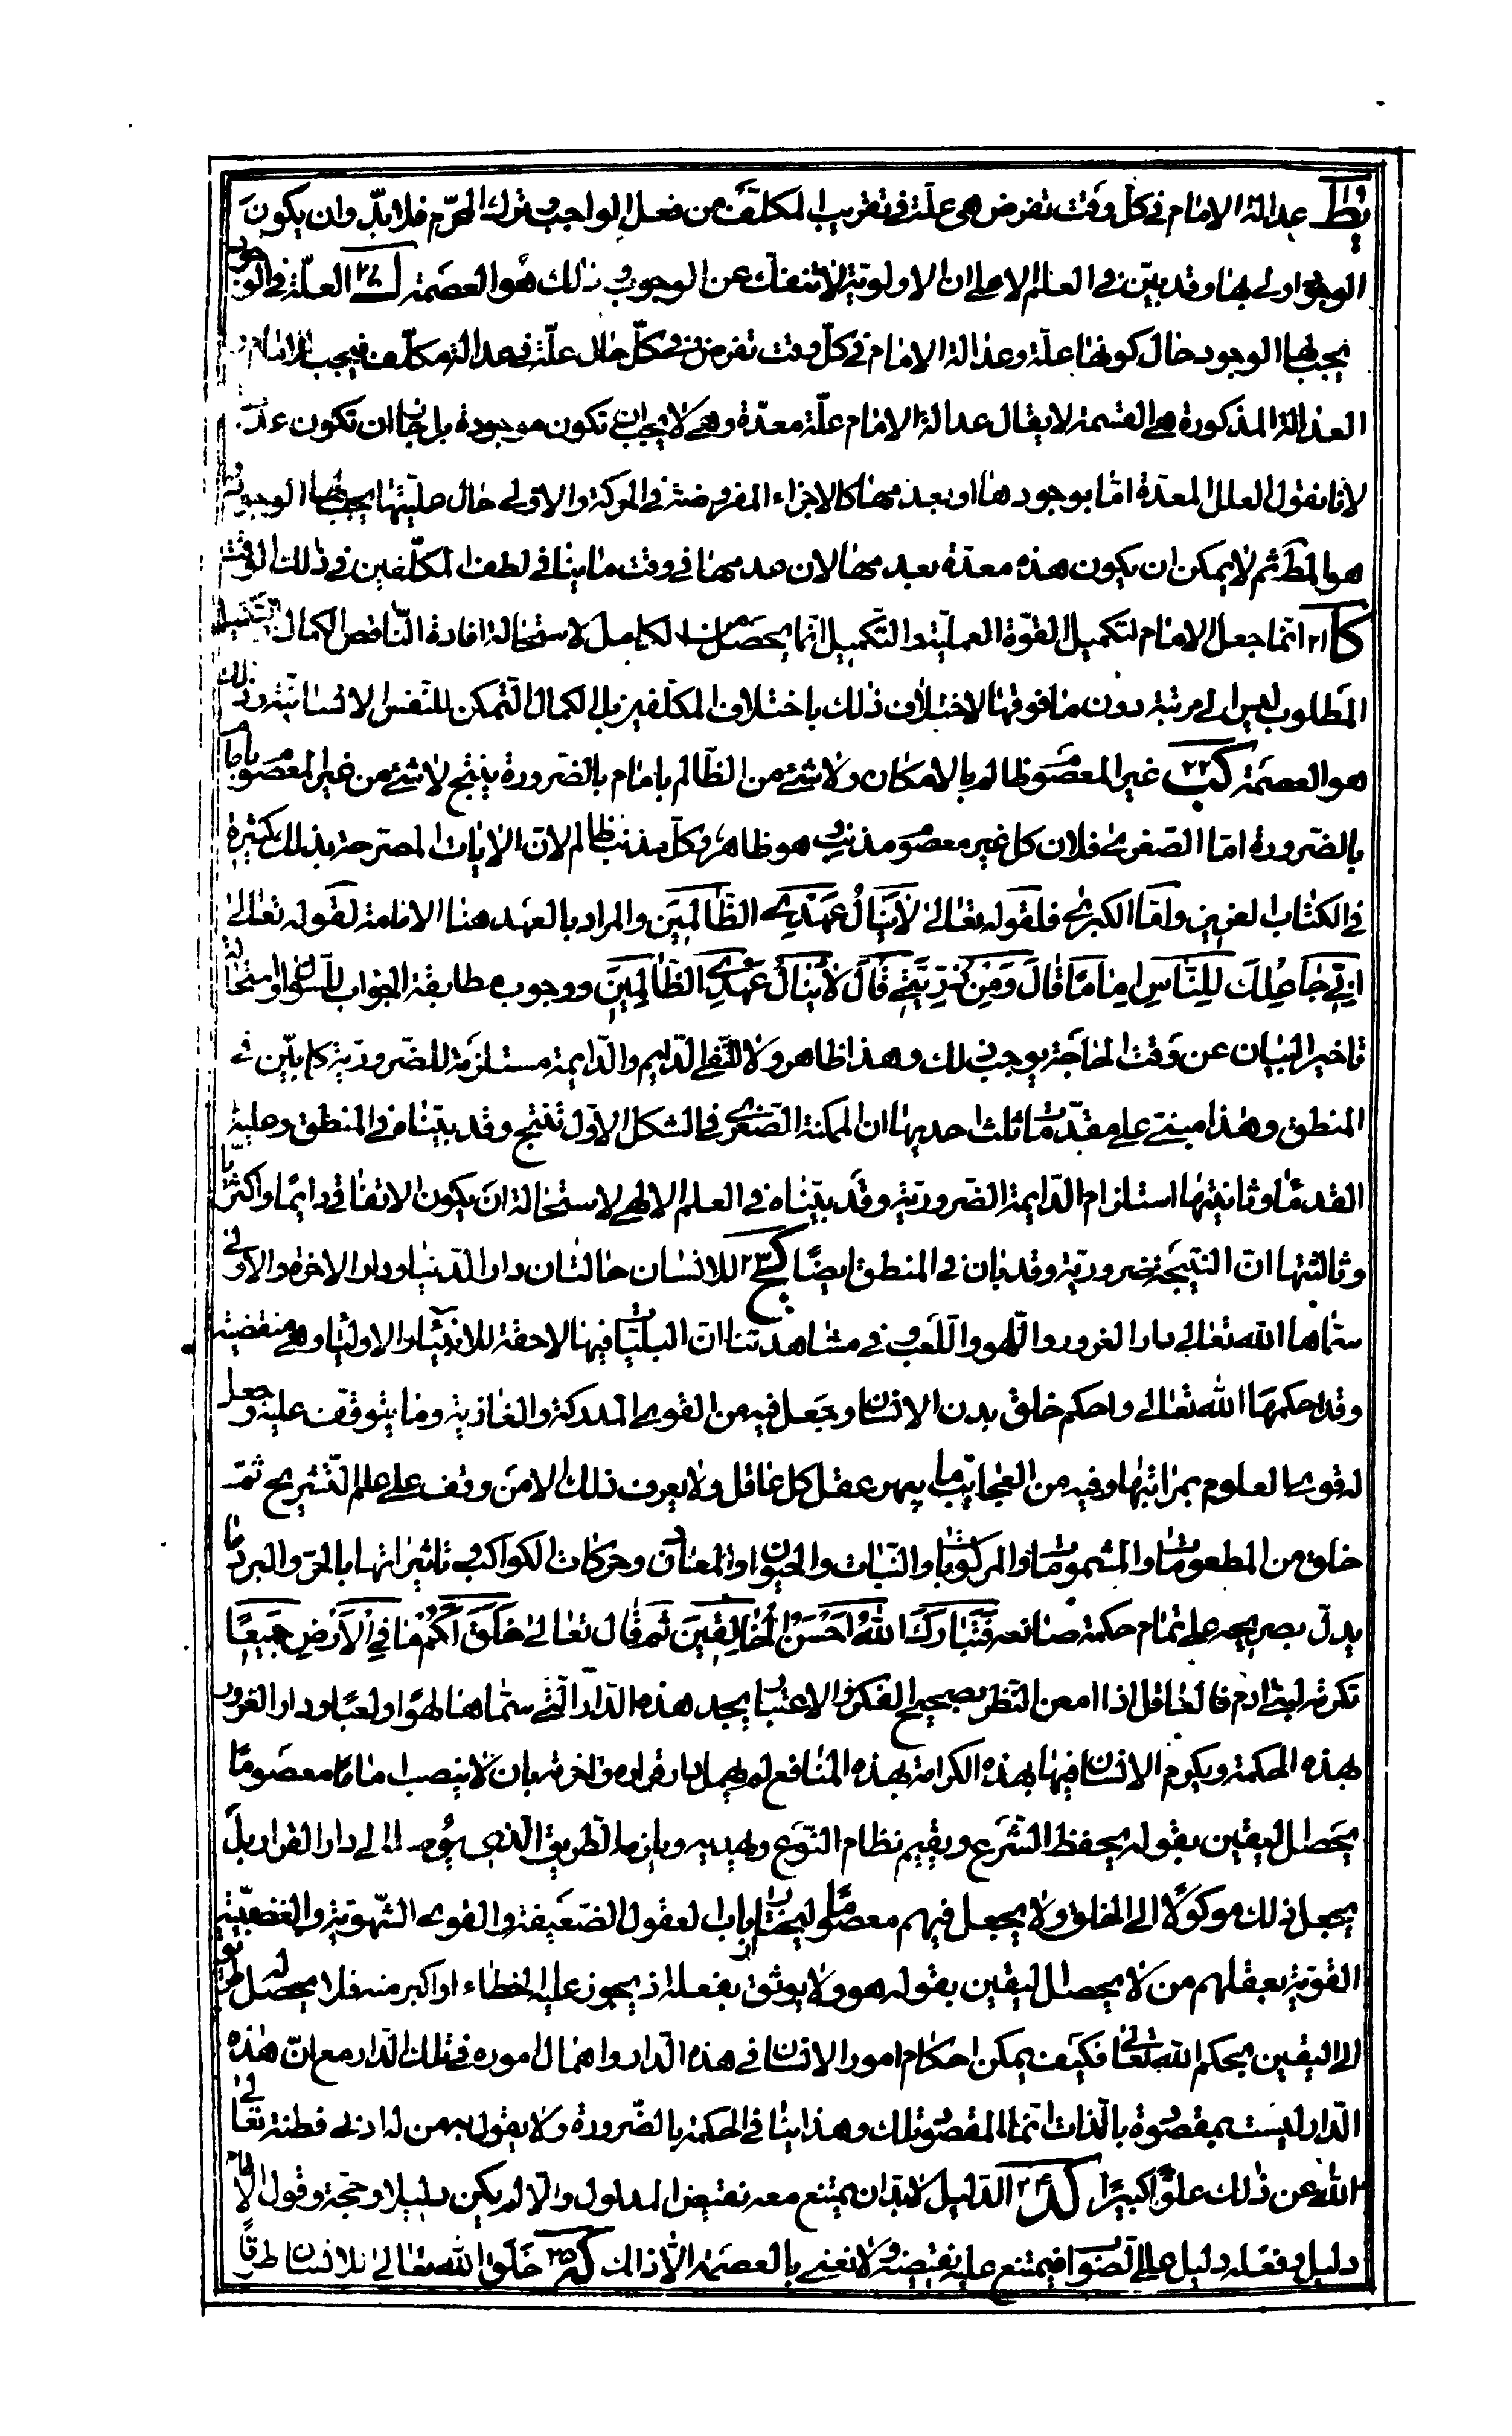 يط عدالة الامام في كل وقت تفرض هي علة في تقريب المكلف من فعل الواجب و ترك المحرم فلا بد وان يكون
الوجود اولى بها وقد بين في العلم الالهي ان الاولوية لا تنفك عن الوجوب و ذلك هو العصمة ك ٢٠ العلة في الوجود
يجب لها الوجود حال كونها علة وعدالة الامام في كل وقت تفرض وفي كل حال علة في عدالة مكلف فيجب للامام
العدالة المذكورة هي القسمة لا يقال عدالة الامام علة معدة وهي لا يجب ان تكون موجودة بل جاز ان تكون
لانا نقول العلل المعدة اما بوجودها او بعدمها كالاجزاء المفروضة في الحركة والاولى حال عليتها يجب لها الوجود
هو المط ثم لا يمكن ان يكون هذه معدة بعدمها لان عدمها في وقت ما ينافي لطف المكلفين في ذلك الوقت
كا ٢١ انما جعل الامام لتكميل القوة العملية والتكميل انما يحصل من الكامل لاستحالة افادة الناقص الكمال
المطلوب ليس الى مرتبة دون ما فوقها لاختلاف ذلك باختلاف المكلفين بل الكمال المتمكن للنفس الانسانية وذلك
هو العصمة كب ٢٢ غير المعصوم ظالم بالامكان ولا شئ من الظالم بامام بالضرورة ينتج لا شئ من غير المعصوم بامام
بالضرورة اما الصغرى فلان كل غير معصوم مذنب و هو ظاهر وكل مذنب ظالم لان الايات المصرحة بذلك كثيرة
في الكتاب العزيز واما الكبرى فلقوله تعالى لا ينال عهدي الظالمين والمراد بالعهد هنا الامامة لقوله تعالى
اني جاعلك للناس اماما قال ومن ذريتي قال لا ينال عهدي الظالمين ووجوب مطابقة الجواب للسؤال واستحالة
تاخير البيان عن وقت الحاجة يوجب ذلك وهذا ظاهر ولا للنفي الدايم والدايمة مستلزمة للضرورية كما بين في
المنطق وهذا مبني على مقدمات ثلث احديها ان الممكنة الصغرى في الشكل الاول تنتج وقد بيناه في المنطق وعليه
القدماء وثانيتها استلزام الدايمة الضرورية وقد بيناه في العلم الالهي لاستحالة ان يكون الاتفاقي دايما واكثريا
وثالثتها ان النتيجة ضرورية وقد بان في المنطق ايضا كج ٢٣ للانسان حالتان دار الدنيا ودار الاخرة والاولى
سماها الله تعالى دار الغرور واللهو واللعب و في مشاهدتنا ان البليات فيها لاحقة للانبياء والاولياء وهي منقضية
وقد احكمها الله تعالى واحكم خلق بدن الانسان وجعل فيه من القوى المدركة والغاذية وما يتوقف عليه وجعل
له قوى العلوم بمراتبها وفيه من العجايب ما يبهر عقل كل عاقل ولا يعرف ذلك الا من وقف على علم التشريح ثم
خلق من المطعومات والمشمومات والمركوبات والنبات والحيوان والمعادن وحركات الكواكب و تاثيراتها بالحر والبرد ما
يدل بصريحه على تمام حكمة صانعه فتبارك الله احسن الخالقين ثم قال تعالى خلق لكم ما في الارض جميعا
تكرمة لبني ادم فالعاقل اذا امعن النظر بصحيح الفكر والاعتبار يجد هذه الدار التي سماها لهوا ولعبا ودار الغرور
بهذه الحكمة ويكرم الانسان فيها بهذه الكرامة بهذه المنافع لم يهمل دار قراره واخرته بان لا ينصب اماما معصوما
يحصل اليقين بقوله يحفظ الشرع ويقيم نظام النوع ويهديه ويلزمه الطريق الذي يؤصله الى دار القرار بل
يجعل ذلك موكولا الى الخلق ولا يجعل فيهم معصوما ليختار ارباب العقول الضعيفة والقوى الشهوية والغضبية
القوية بعقلهم من لا يحصل اليقين بقوله هو ولا يوثق بفعله اذ يجوز عليه الخطاء او اكبر منه فلا يحصل له طريق
الى اليقين بحكم الله تعالى فكيف يمكن احكام امور الانسان في هذه الدار واهمال اموره في تلك الدار مع ان هذه
الدار ليست بمقصودة بالذات انما المقصود تلك وهذا ينافي الحكمة بالضرورة ولا يقول به من له ادنى فطنة تعالى
الله عن ذلك علوا كبيرا كد ٢٤ الدليل لا بد ان يمتنع معه نقيض المدلول والا لم يكن دليلا وحجة وقول الامام
دليل وفعله دليل على الصواب فيمتنع عليه نقيضه ولا نعني بالعصمة الا ذلك كه ٢٥ خلق الله تعالى للانسان طرقا